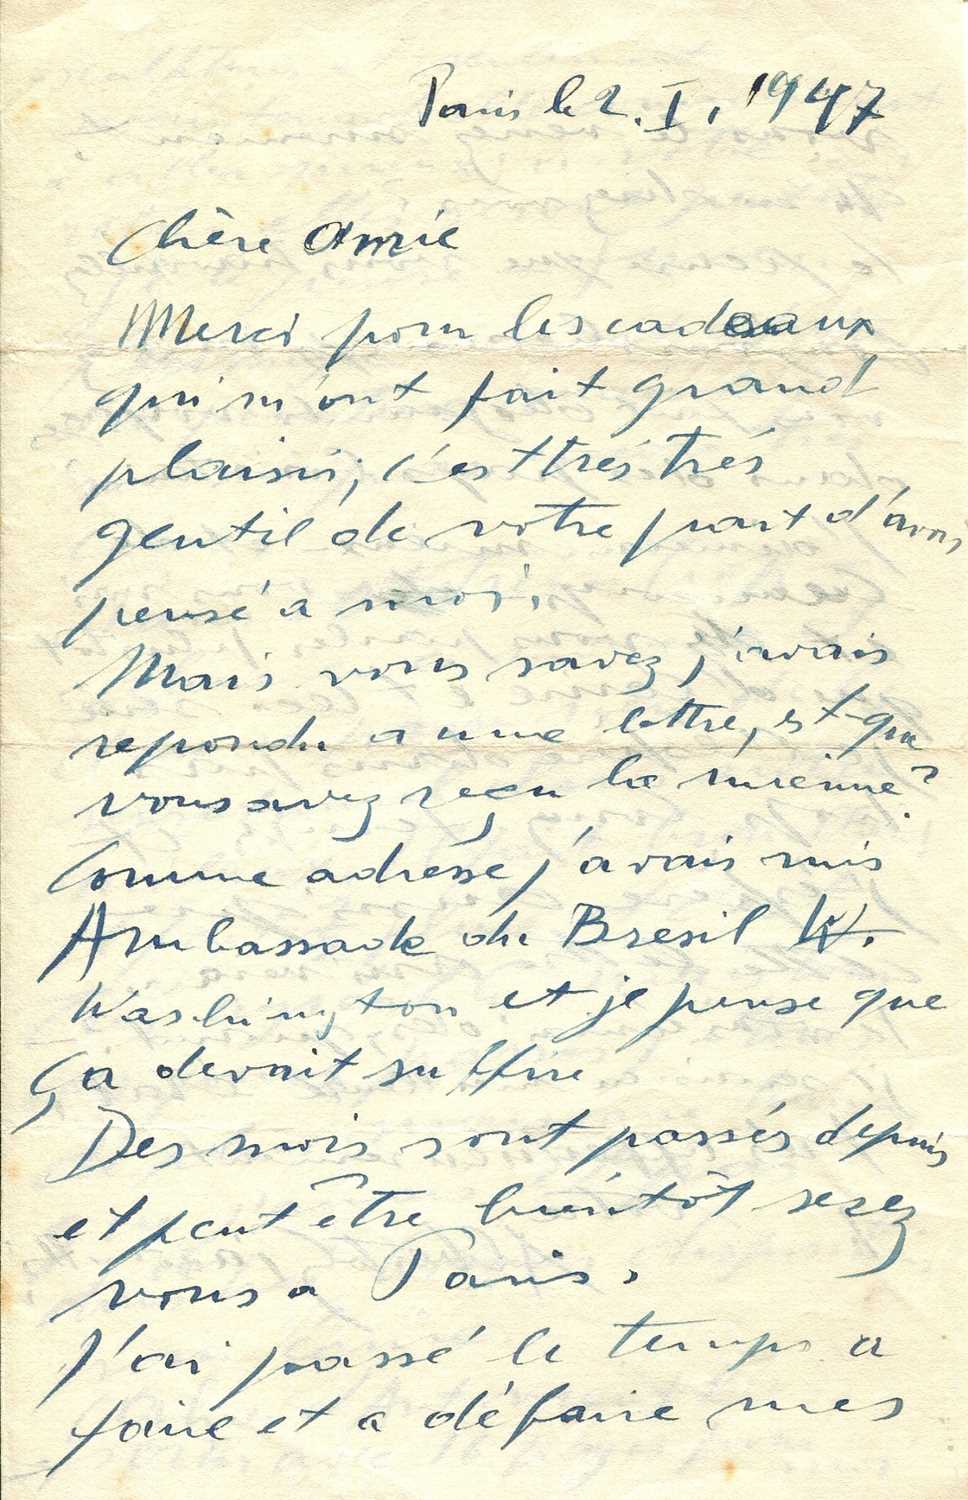 Paris le 2. I. 1947
Chère Amie
Merci pour les cadeaux
qui m'ont fait grand
plaisir, c'est trés trés
gentil de votre part d'avoir
pensé a moi.
Mais vous savez j'avais
repondu a une lettre, est-que
vous avez reçu la mienne?
Comme adrésse j'avais mis
Ambassade du Bresil W.
Washington et je pense que
ça devait suffire
Des mois sont passés depuis
et peut être bientôt serez
vous a Paris.
J'ai passé le temps a
faire et a défaire mes